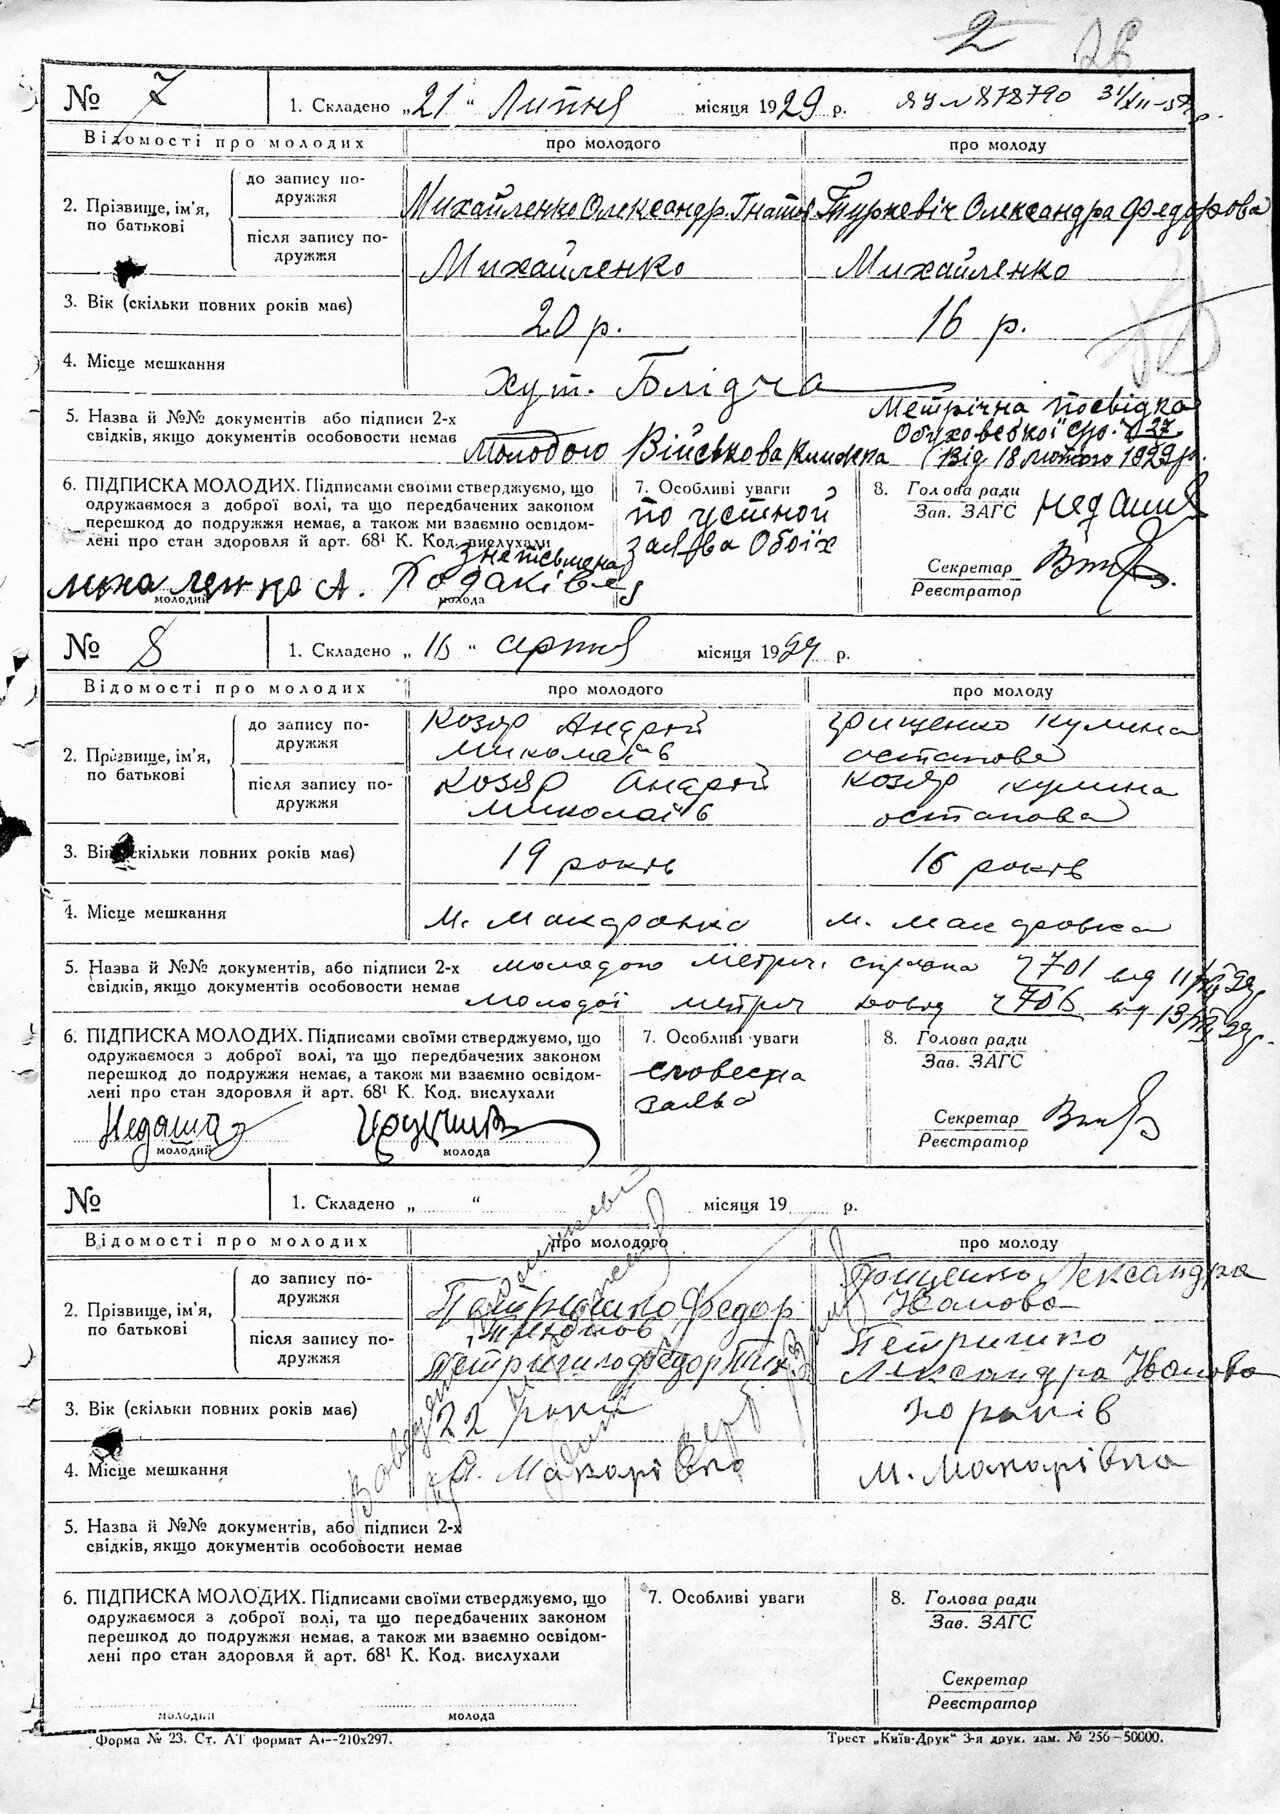 2
№ 7
1. Складено „21“ Липня місяця 1929 р.
ЯУ № 878790
Відомості про молодих
про молодого
про молоду
2. Прізвище, ім'я, по батькові
до запису подружжя
Михайленко Олександр Гнатов
Туркевіч Олександра Федорова
після запису подружжя
Михайленко
Михайленко
3. Вік (скільки повних років має)
20 р.
16 р.
4. Місце мешкання
хут. Блідча
5. Назва й №№ документів або підписи 2-х
свідків, якщо документів особовости немає
Молодого Військова книжка
Метрічна посвідка
Обуховської с/р. ч 27
від 18 лютого 1929 р.
6. ПІДПИСКА МОЛОДИХ. Підписами своїми стверджуємо, що
одружаємося з доброї волі, та що передбачених законом
перешкод до подружжя немає, а також ми взаємно освідом-
лені про стан здоровля й арт. 68¹ К. Код. вислухали
молодий
молода
7. Особливі уваги
по устной
заява Обоїх
8. Голова ради
Зав. ЗАГС
Секретар
Реєстратор
№ 8
1. Складено „ “ серпня місяця 1929 р.
Відомості про молодих
про молодого
про молоду
2. Прізвище, ім'я, по батькові
до запису подружжя
Козяр Андрій
Миколаїв
Грищенко Кулина
Остапова
після запису подружжя
Козяр Андрій
Миколаїв
Козяр Кулина
Остапова
3. Вік (скільки повних років має)
19 років
16 років
4. Місце мешкання
5. Назва й №№ документів, або підписи 2-х
свідків, якщо документів особовости немає
молодого метрич. справка ч 701 від
молодої метрич ч 706 від
6. ПІДПИСКА МОЛОДИХ. Підписами своїми стверджуємо, що
одружаємося з доброї волі, та що передбачених законом
перешкод до подружжя немає, а також ми взаємно освідом-
лені про стан здоровля й арт. 68¹ К. Код. вислухали
молодий
молода
7. Особливі уваги
словесна
заява
8. Голова ради
Зав. ЗАГС
Секретар
Реєстратор
№
1. Складено „ “ місяця 19 р.
Відомості про молодих
про молодого
про молоду
2. Прізвище, ім'я, по батькові
до запису подружжя
Федор
Лександра
Иванова
після запису подружжя
Лександра Иванова
3. Вік (скільки повних років має)
22 роки
років
4. Місце мешкання
М. Макарівка
М. Макарівка
5. Назва й №№ документів, або підписи 2-х
свідків, якщо документів особовости немає
6. ПІДПИСКА МОЛОДИХ. Підписами своїми стверджуємо, що
одружаємося з доброї волі, та що передбачених законом
перешкод до подружжя немає, а також ми взаємно освідом-
лені про стан здоровля й арт. 68¹ К. Код. вислухали
молодий
молода
7. Особливі уваги
8. Голова ради
Зав. ЗАГС
Секретар
Реєстратор
Форма № 23. Ст. АТ формат А₄—210х297.
Трест „Київ-Друк“ 3-я друк. зам. № 256—50000.